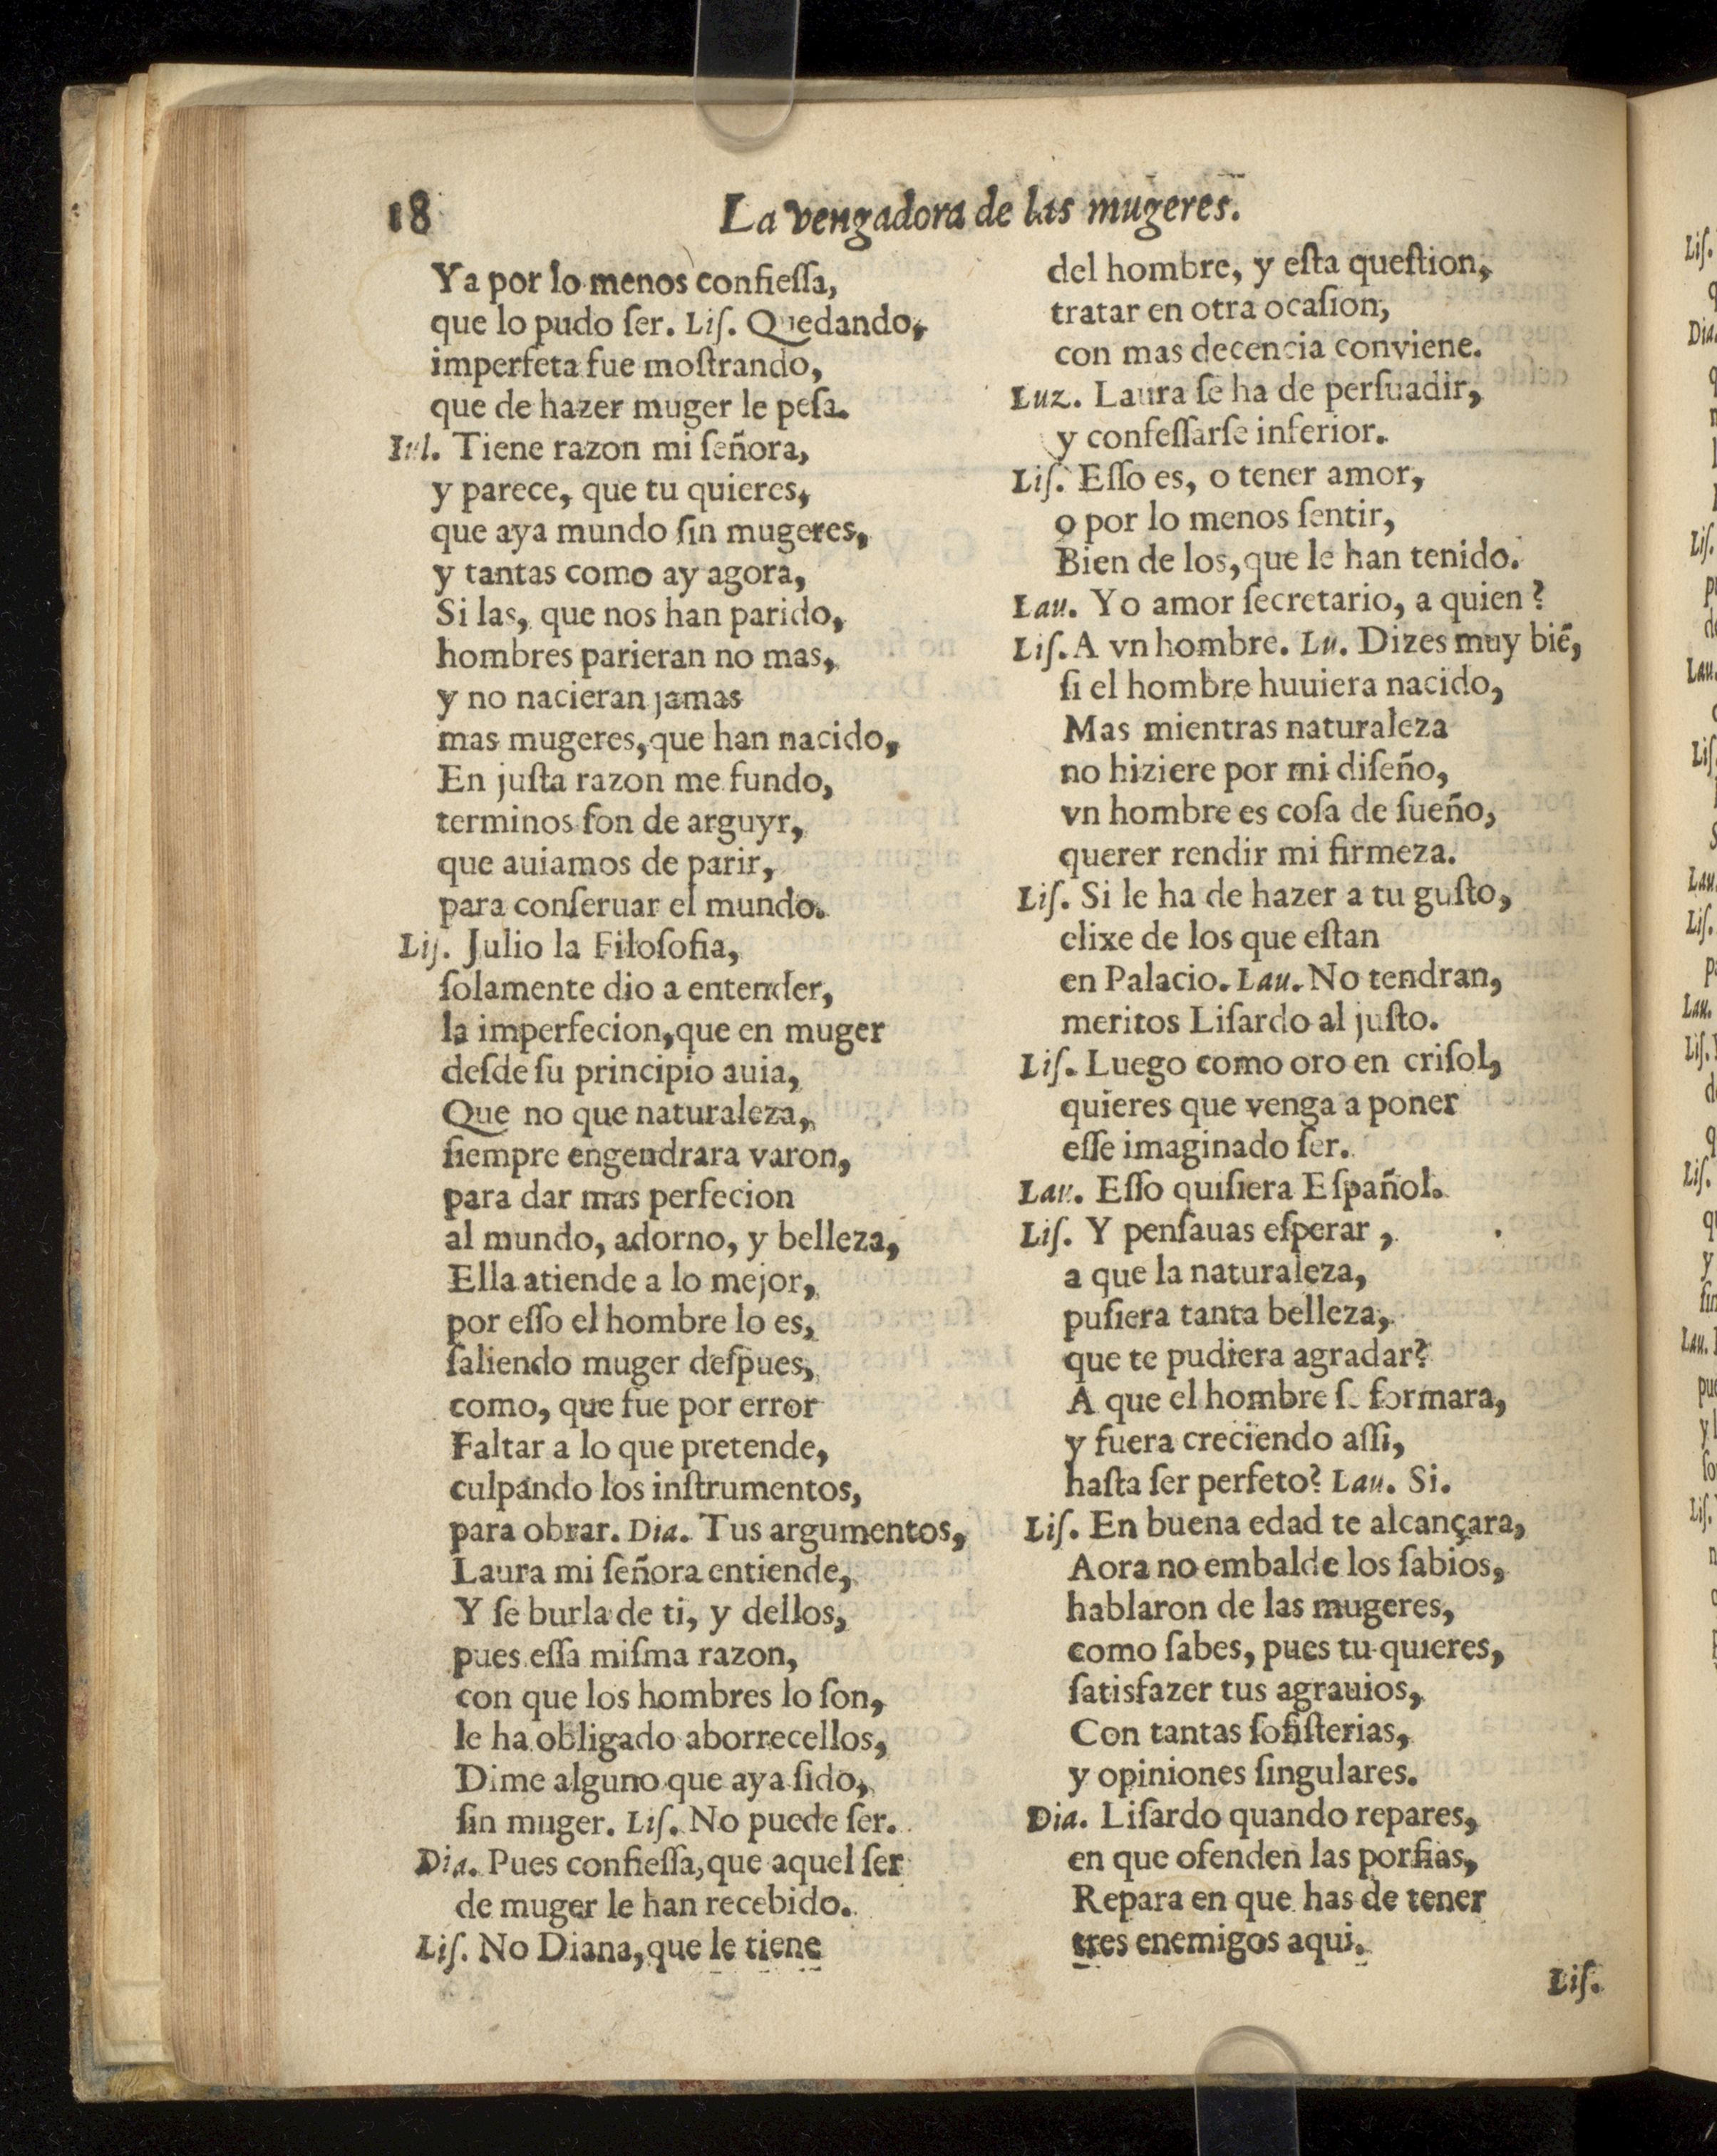 18
La vengadora de las mugeres.
Ya por lo menos confieſſa,
que lo pudo ſer. Liſ. Quedando,
imperfeta fue moſtrando,
que de hazer muger le peſa.
Iul. Tiene razon mi ſeñora,
y parece, que tu quieres,
que aya mundo ſin mugeres,
y tantas como ay agora,
Si las, que nos han parido,
hombres parieran no mas,
y no nacieran jamas
mas mugeres, que han nacido,
En juſta razon me fundo,
terminos ſon de arguyr,
que auiamos de parir,
para conſeruar el mundo.
Liſ. Julio la Filoſofia,
ſolamente dio a entender,
la imperfecion, que en muger
deſde ſu principio auia,
Que no que naturaleza,
ſiempre engendrara varon,
para dar mas perfecion
al mundo, adorno, y belleza,
Ella atiende a lo mejor,
por eſſo el hombre lo es,
ſaliendo muger deſpues,
como, que fue por error
Faltar a lo que pretende,
culpando los inſtrumentos,
para obrar. Dia. Tus argumentos,
Laura mi ſeñora entiende,
Y ſe burla de ti, y dellos,
pues eſſa miſma razon,
con que los hombres lo ſon,
le ha obligado aborrecellos,
Dime alguno que aya ſido,
ſin muger. Liſ. No puede ſer.
Dia. Pues confieſſa, que aquel ſer
de muger le han recebido.
Liſ. No Diana, que le tiene
del hombre, y eſta queſtion,
tratar en otra ocaſion,
con mas decencia conviene.
Luz. Laura ſe ha de perſuadir,
y confeſſarſe inferior.
Liſ. Eſſo es, o tener amor,
o por lo menos ſentir,
Bien de los, que le han tenido.
Lau. Yo amor ſecretario, a quien?
Liſ. A vn hombre. Lu. Dizes muy biẽ,
ſi el hombre huuiera nacido,
Mas mientras naturaleza
no hiziere por mi diſeño,
vn hombre es coſa de ſueño,
querer rendir mi firmeza.
Liſ. Si le ha de hazer a tu guſto,
elixe de los que eſtan
en Palacio. Lau. No tendran,
meritos Liſardo al juſto.
Liſ. Luego como oro en criſol,
quieres que venga a poner
eſſe imaginado ſer.
Lau. Eſſo quiſiera Eſpañol.
Liſ. Y penſauas eſperar,
a que la naturaleza,
puſiera tanta belleza,
que te pudiera agradar?
A que el hombre ſe formara,
y fuera creciendo aſſi,
haſta ſer perfeto? Lau. Si.
Liſ. En buena edad te alcançara,
Aora no embalde los ſabios,
hablaron de las mugeres,
como ſabes, pues tu quieres,
ſatisfazer tus agrauios,
Con tantas ſofiſterias,
y opiniones ſingulares.
Dia. Liſardo quando repares,
en que ofenden las porfias,
Repara en que has de tener
tres enemigos aqui.
Liſ.